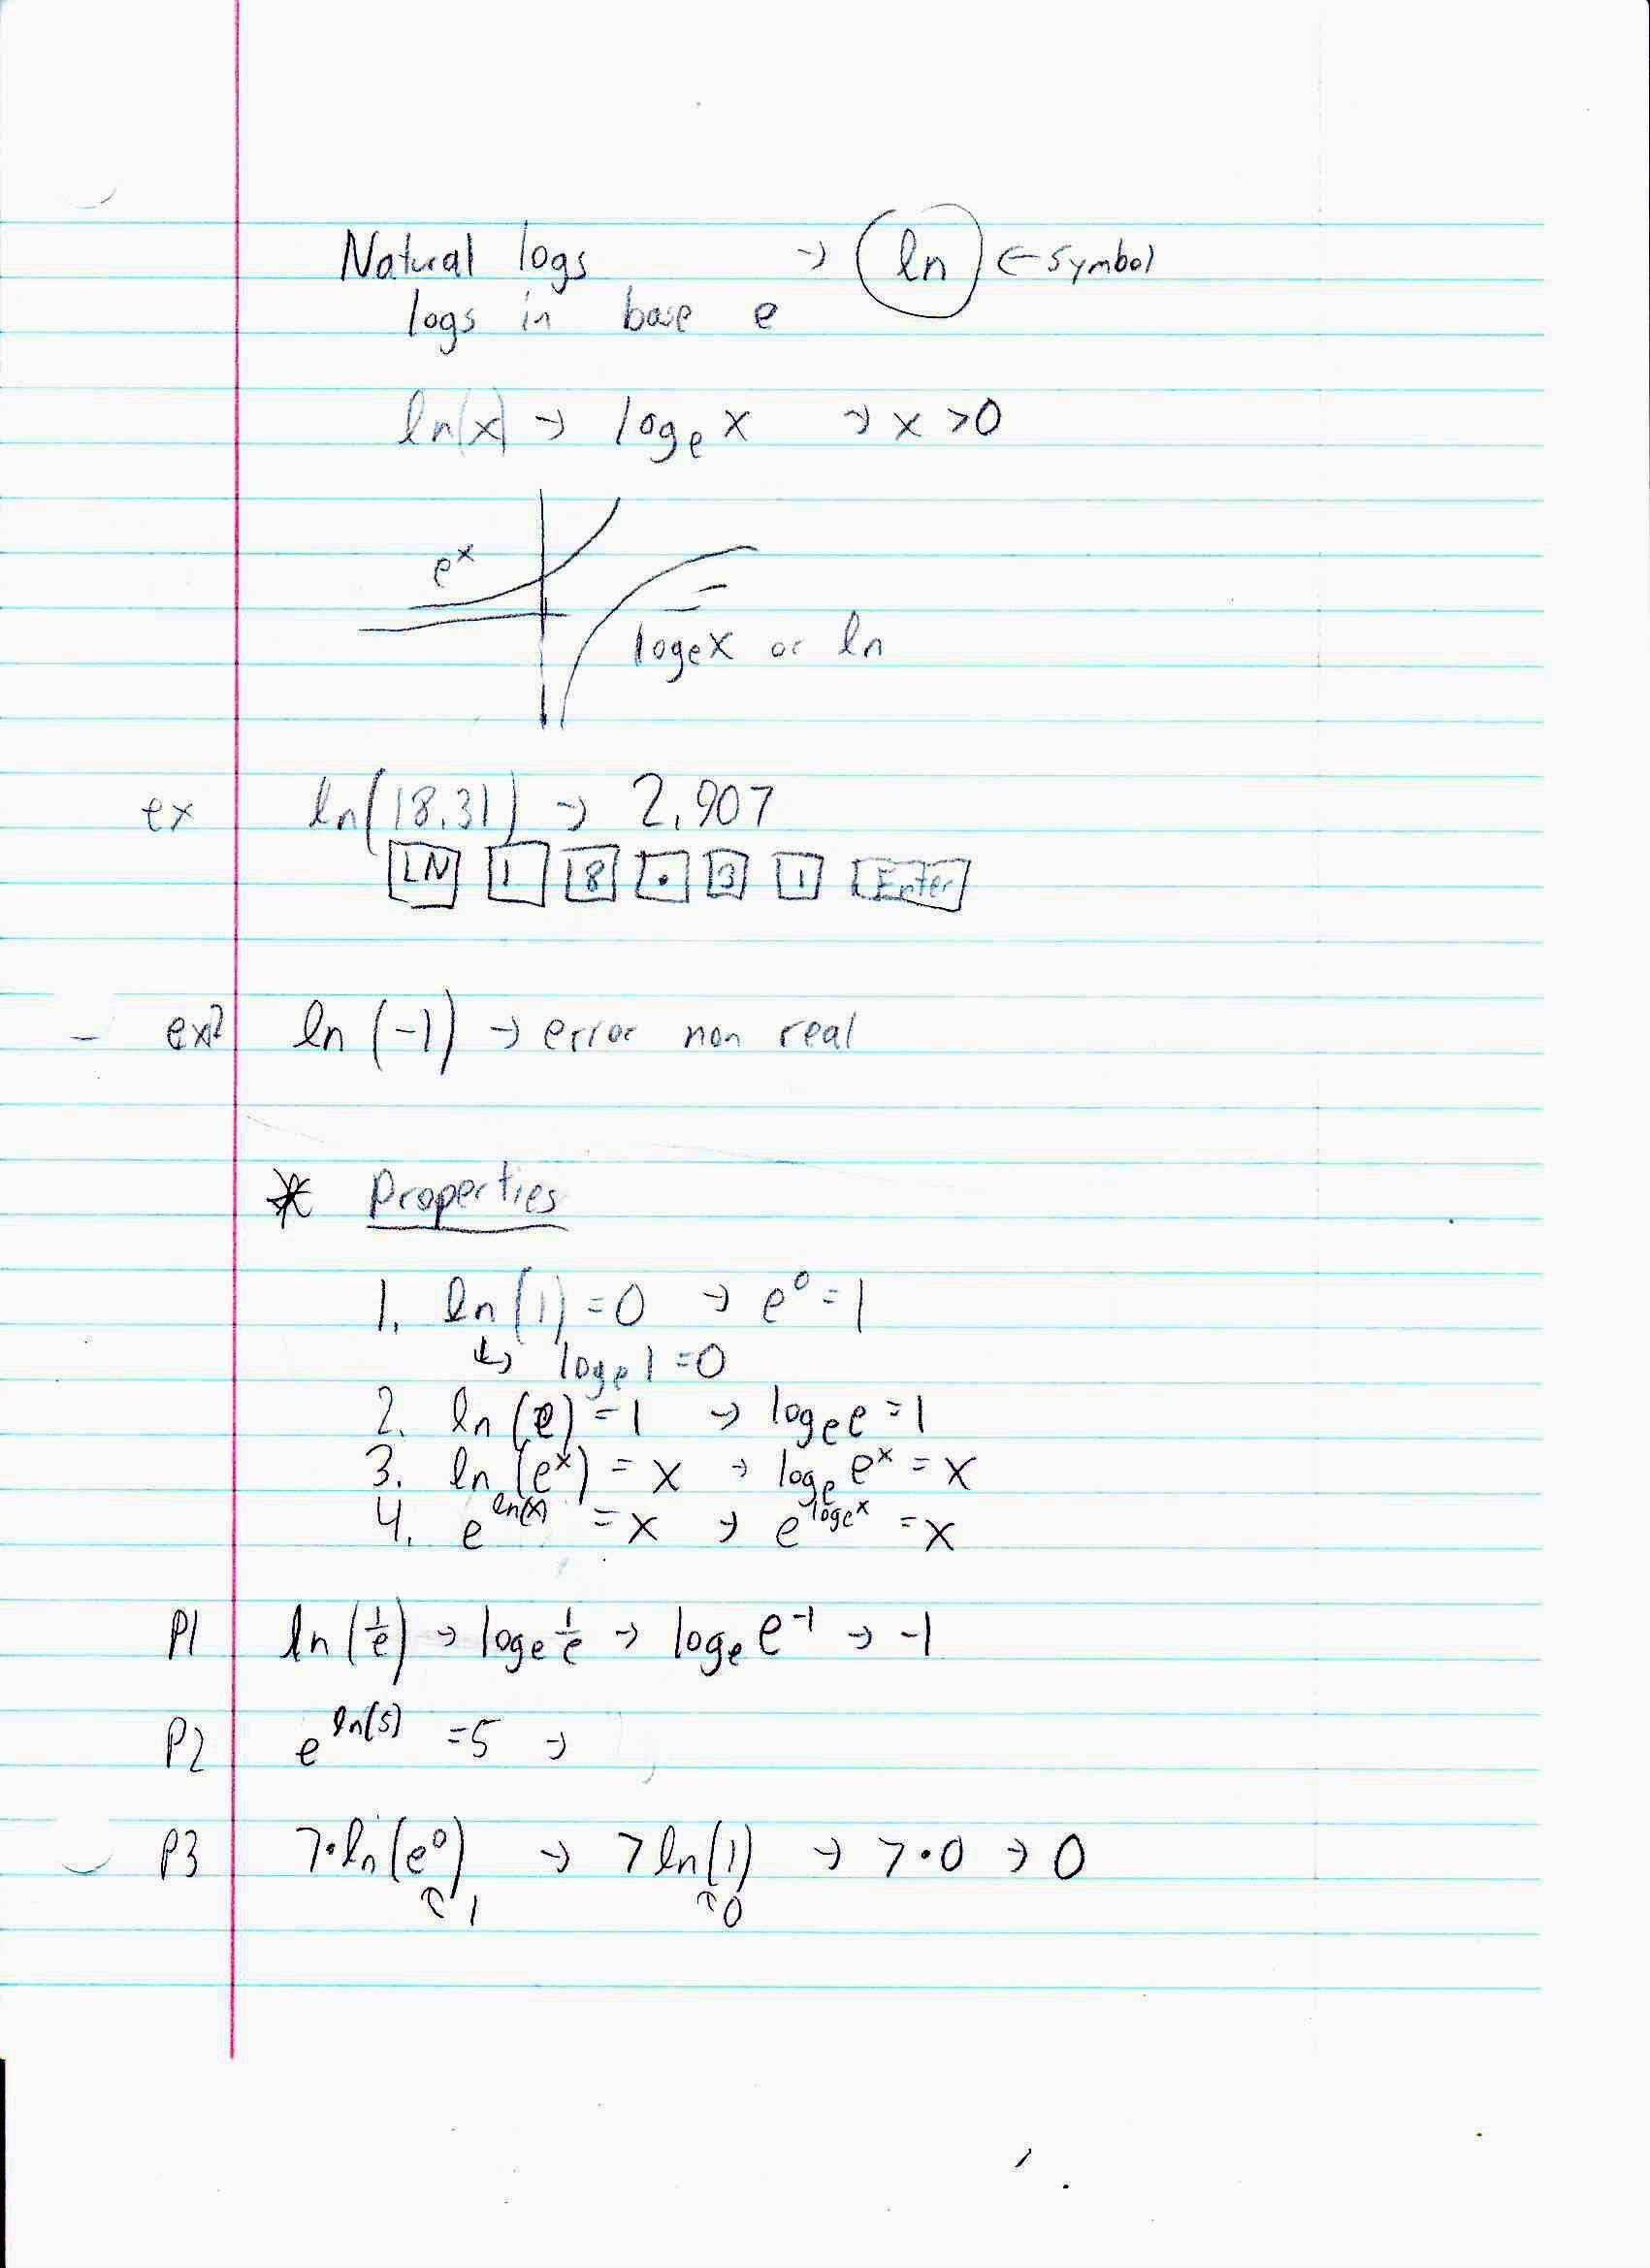 Natural logs → ln ← symbol
logs in base e
ln(x) → logₑ x → x > 0
eˣ
logₑx or ln
ex ln(18.31) → 2.907
LN 1 8 . 3 1 Enter
ex2 ln (-1) → error non real
* Properties
1. ln (1) = 0 → e⁰ = 1
↳ logₑ 1 = 0
2. ln (e) = 1 → logₑ e = 1
3. ln (eˣ) = x → logₑ eˣ = x
4. e^ln(x) = x → e^logₑx = x
P1 ln (1/e) → logₑ 1/e → logₑ e⁻¹ → -1
P2 e^ln(5) = 5 →
P3 7·ln(e⁰) → 7 ln(1) → 7·0 → 0
↑ 1 ↑ 0